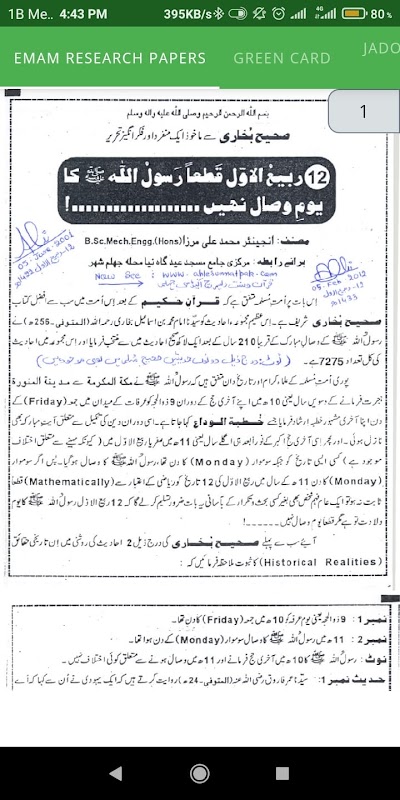 1B Me... 4:43 PM 395KB/s 80%
EMAM RESEARCH PAPERS GREEN CARD JADO
1
بسم اللہ الرحمن الرحیم وصلی اللہ علیہ والہ وسلم
صحیح بخاری سے ماخوذ ایک منفرد اور فکر انگیز تحریر
12 ربیع الاوّل قطعاً رسول اللہ ﷺ کا
یوم وصال نہیں ..................!
مصنف: انجینئر محمد علی مرزا B.Sc.Mech.Engg.(Hons)
برائے رابطہ: مرکزی جامع مسجد عید گاہ نیا محلہ جہلم شہر
New See: www.ahlesunnatpak.com
اس بات پر اُمت مُسلمہ متفق ہے کہ قرآن حکیم کے بعد اِس اُمت میں سب سے افضل کتاب
صحیح بخاری شریف ہے۔ اس عظیم مجموعہ احادیث کو سیّدنا امام محمد بن اسماعیل بخاری رحمہ اللہ (المتوفی-256ھ) نے
رسول اللہ ﷺ کے وصال مبارک کے قریباً 210 سال کے بعد ایک لاکھ صحیح احادیث سے منتخب فرمایا اور اس مجموعہ میں احادیث
کی کل تعداد 7275 ہے۔
پوری اُمت مُسلمہ کے علماء کرام اور تاریخ دان متفق ہیں کہ رسول اللہ ﷺ نے مکۃ المکرمہ سے مدینۃ المنورۃ
ہجرت فرمانے کے دسویں سال یعنی 10ھ میں اپنے آخری حج کے دوران 9 ذوالحجہ کو عرفات کے میدان میں جمعہ (Friday) کے
دن اپنا آخری مشہور خطبہ ارشاد فرمایا جسے خطبۃ الوداع کہا جاتا ہے۔ اسی دوران دین کی تکمیل سے متعلق آیت مبارکہ بھی
نازل ہوئی۔ اور پھر اسی آخری حج اکبر کے فوراً بعد ہی اگلے سال یعنی 11ھ میں صفر یا ربیع الاوّل میں (کیونکہ مہینے سے متعلق اختلاف
موجود ہے) کسی ایسی تاریخ کو جبکہ سوموار (Monday) کا دن تھا، رسول اللہ ﷺ کا وصال ہو گیا۔ پس اگر سوموار
(Monday) کا دن 11ھ کے سال میں ربیع الاوّل کی 12 تاریخ کو ریاضی کے اعتبار سے (Mathematically) قطعاً
ثابت نہ ہو تو ایک عام فہم شخص بھی بغیر کسی بحث و تکرار کے بآسانی یہ بات ضرور تسلیم کر لے گا کہ 12 ربیع الاوّل رسول اللہ ﷺ کا یوم
ولادت تو ہے مگر قطعاً یوم وصال نہیں------!
آئیے سب سے پہلے صحیح بخاری کی درج ذیل 2 احادیث کی روشنی میں اِن تاریخی حقائق
(Historical Realities) کا ثبوت ملاحظہ فرمائیں کہ:
نمبر 1: 9 ذوالحجہ یعنی یوم عرفہ کو 10ھ میں جمعہ (Friday) کا دن تھا۔
نمبر 2: 11ھ میں رسول اللہ ﷺ کا وصال سوموار (Monday) کے دن ہوا تھا۔
نوٹ: رسول اللہ ﷺ کا 10ھ میں آخری حج فرمانے اور 11ھ میں وصال ہونے سے متعلق کوئی اختلاف نہیں۔
حدیث نمبر 1: سیّدنا عمر فاروق رضی اللہ عنہ (المتوفی-24ھ) روایت کرتے ہیں کہ ایک یہودی نے اُن سے کہا کہ اے